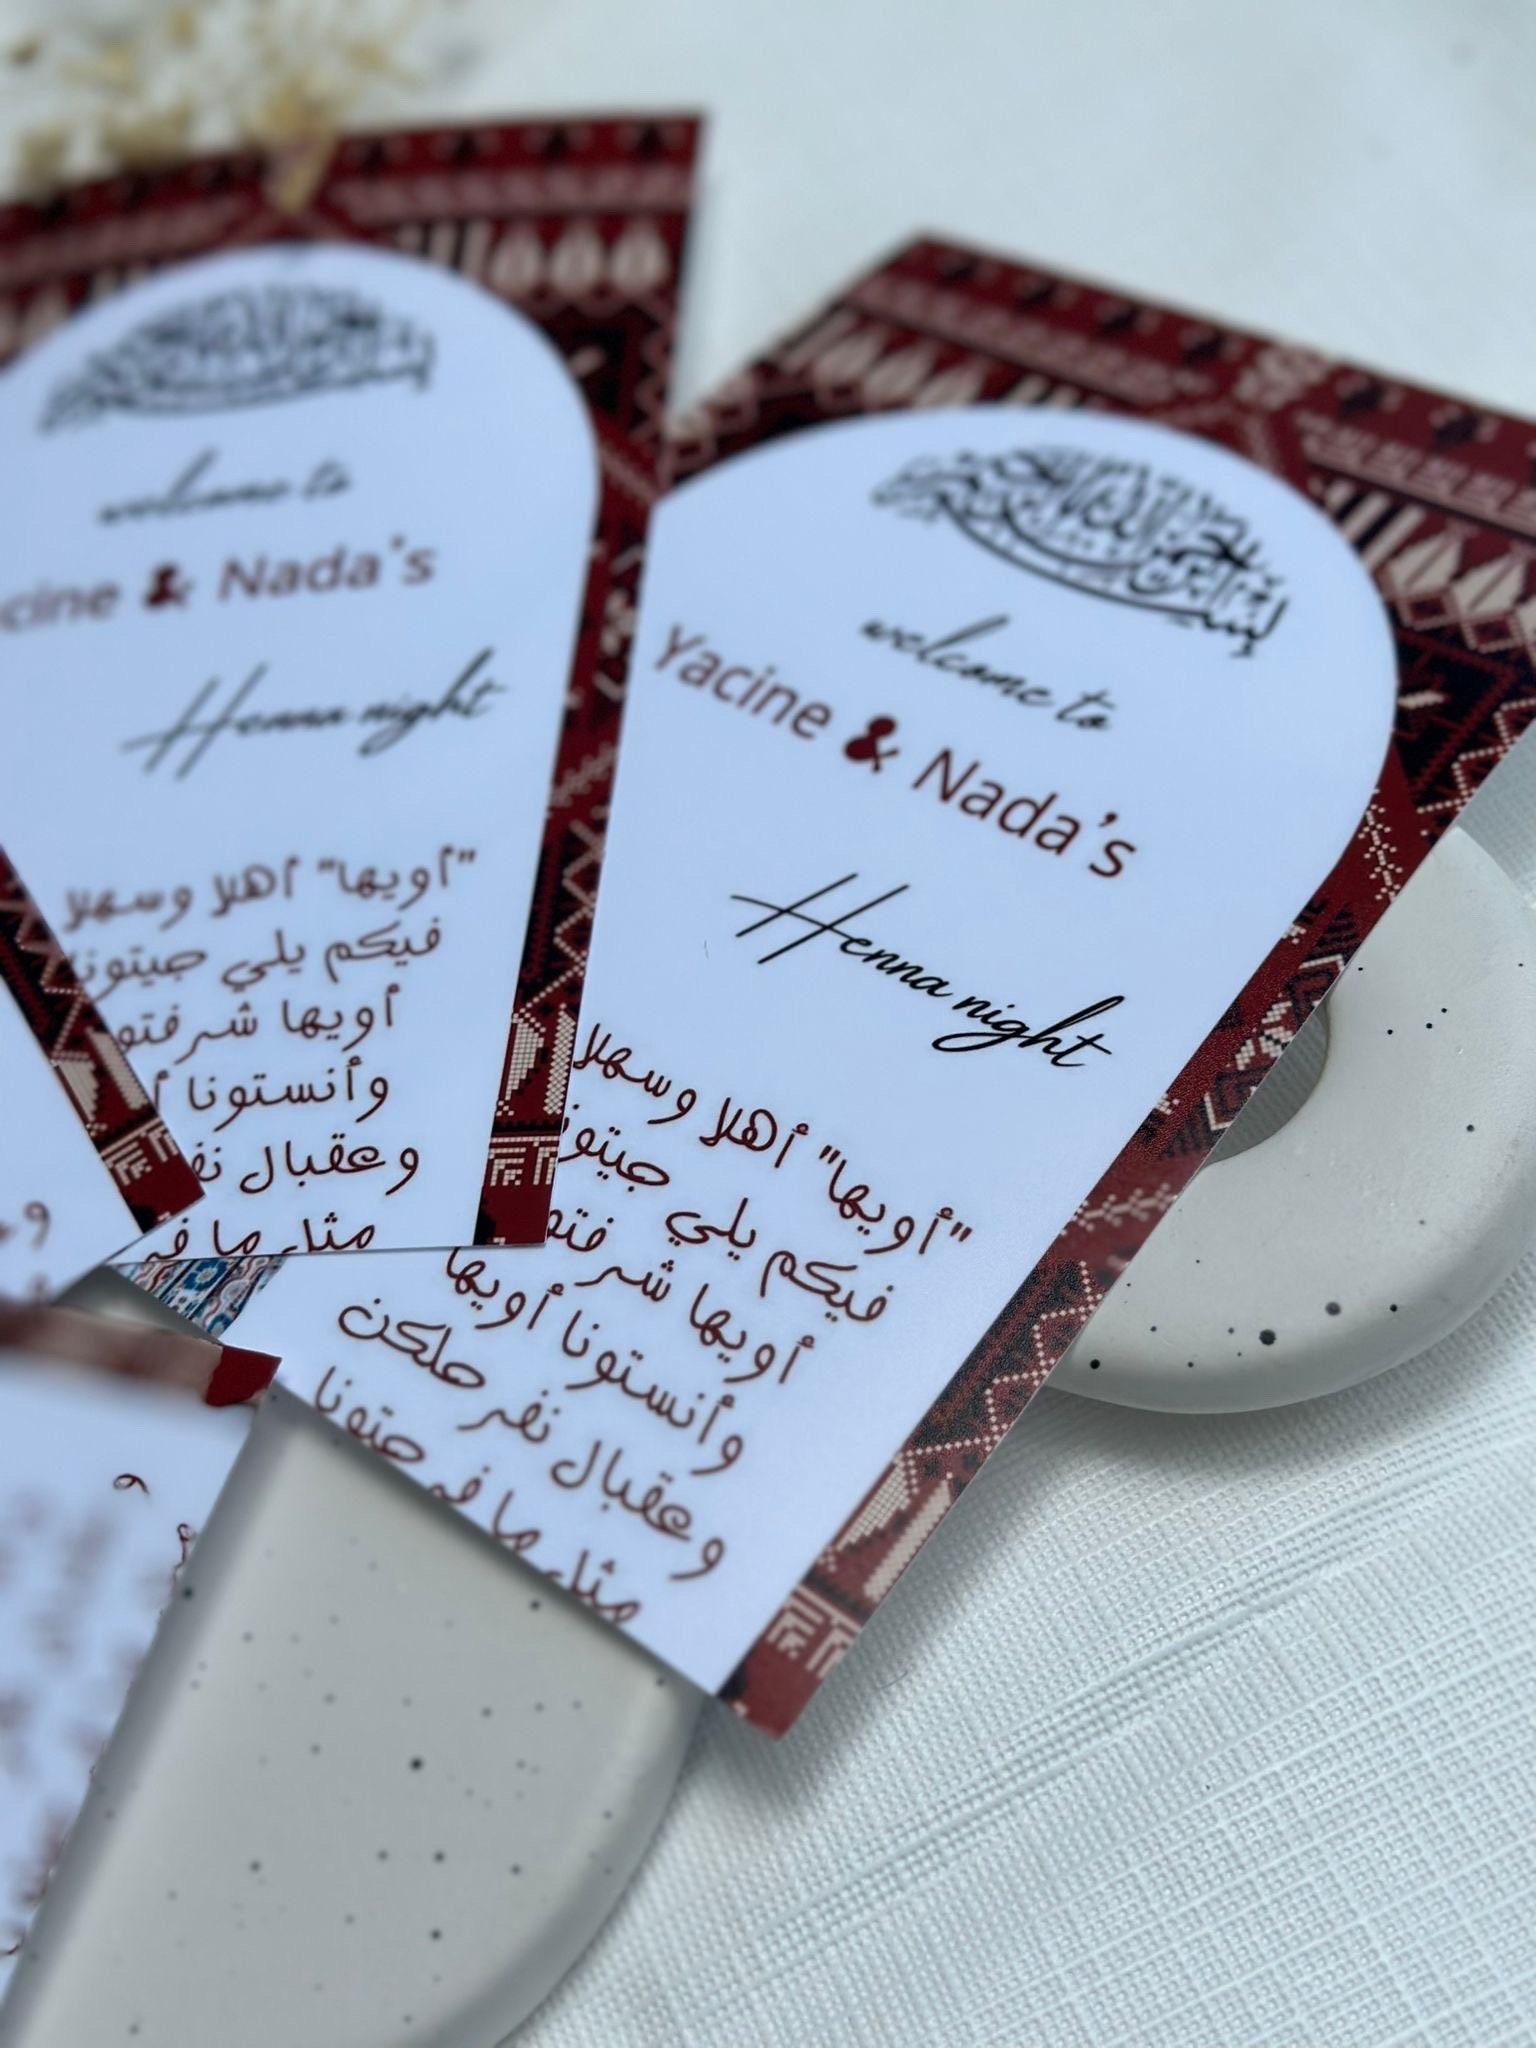 welcome to
& Nada's
Henna night
"أويها" أهلا وسهلا
فيكم يلي جيتونا
أويها شرفتو
وأنستونا أ
وعقبال نف
مثل ما في
بسم الله الرحمن الرحيم
welcome to
Yacine & Nada's
Henna night
"أويها" أهلا وسهلا
فيكم يلي جيتو
أويها شرفتو
وأنستونا أويها
وعقبال نفرحلكن
مثل ما في جيتونا